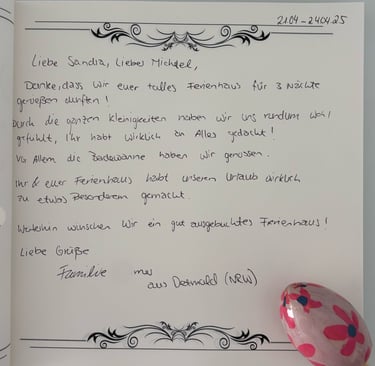 21.04 - 24.04.25
Liebe Sandra, Lieber Michael,
Danke, dass wir euer tolles Ferienhaus für 3 Nächte
genießen durften!
Durch die ganzen Kleinigkeiten haben wir uns rundum wohl
gefühlt, Ihr habt wirklich an Alles gedacht!
Vor Allem die Badewanne haben wir genossen.
Ihr & euer Ferienhaus habt unseren Urlaub wirklich
zu etwas Besonderem gemacht.
Weiterhin wünschen wir ein gut ausgebuchtes Ferienhaus!
Liebe Grüße
Familie
aus Detmold (NRW)